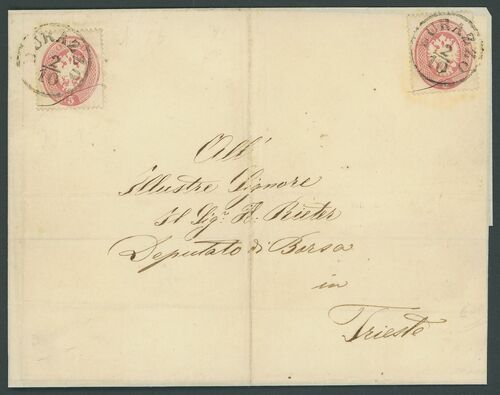 DURAZZO
2/10
5
DURAZZO
2/10
All'
Illustre Signore
Il Sigr. H. Rieter
Deputato di Borsa
in
Trieste